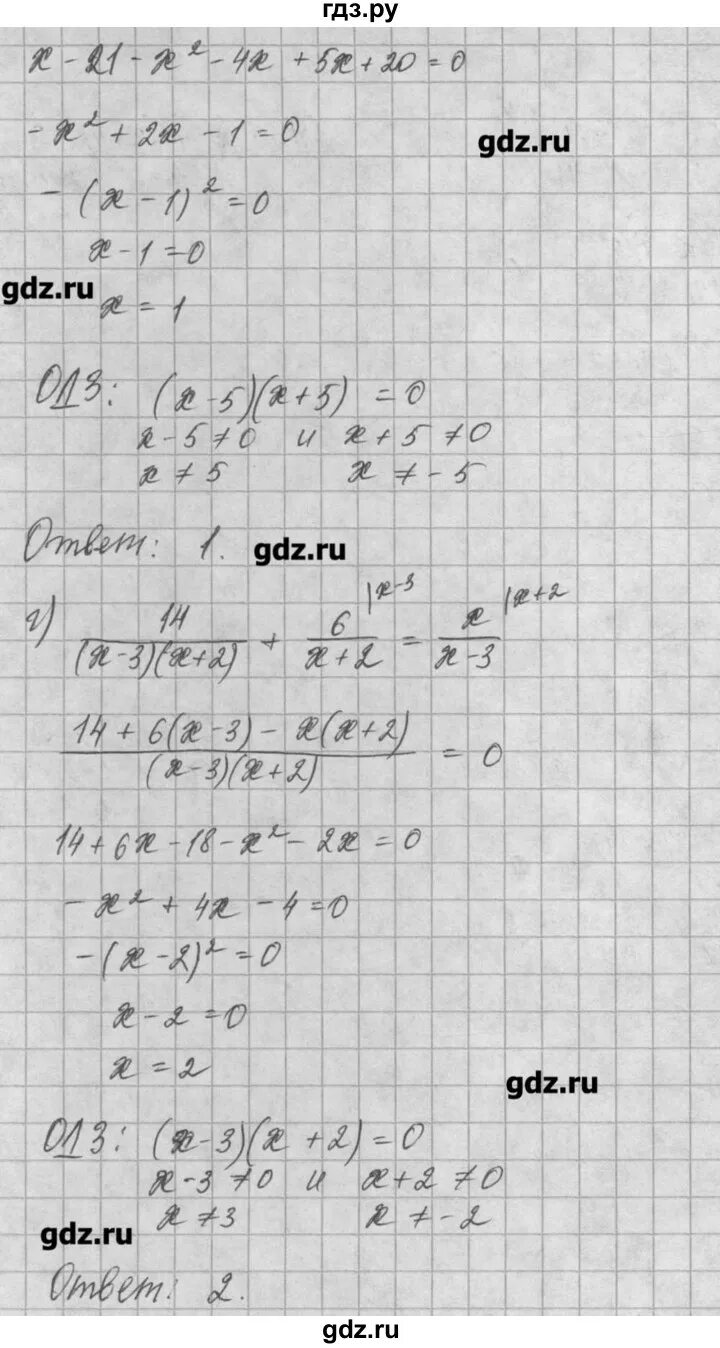 гдз.ру
x - 21 - x² - 4x + 5x + 20 = 0
- x² + 2x - 1 = 0
gdz.ru
- (x - 1)² = 0
x - 1 = 0
gdz.ru
x = 1
ОДЗ: (x - 5)(x + 5) = 0
x - 5 ≠ 0 и x + 5 ≠ 0
x ≠ 5 x ≠ - 5
Ответ: 1. gdz.ru
г) 14/((x-3)(x+2)) + 6/(x+2) |x-3 = x/(x-3) |x+2
(14 + 6(x-3) - x(x+2))/((x-3)(x+2)) = 0
14 + 6x - 18 - x² - 2x = 0
- x² + 4x - 4 = 0
- (x - 2)² = 0
x - 2 = 0
x = 2
gdz.ru
ОДЗ: (x - 3)(x + 2) = 0
x - 3 ≠ 0 и x + 2 ≠ 0
x ≠ 3 x ≠ - 2
gdz.ru
Ответ: 2.
gdz.ru